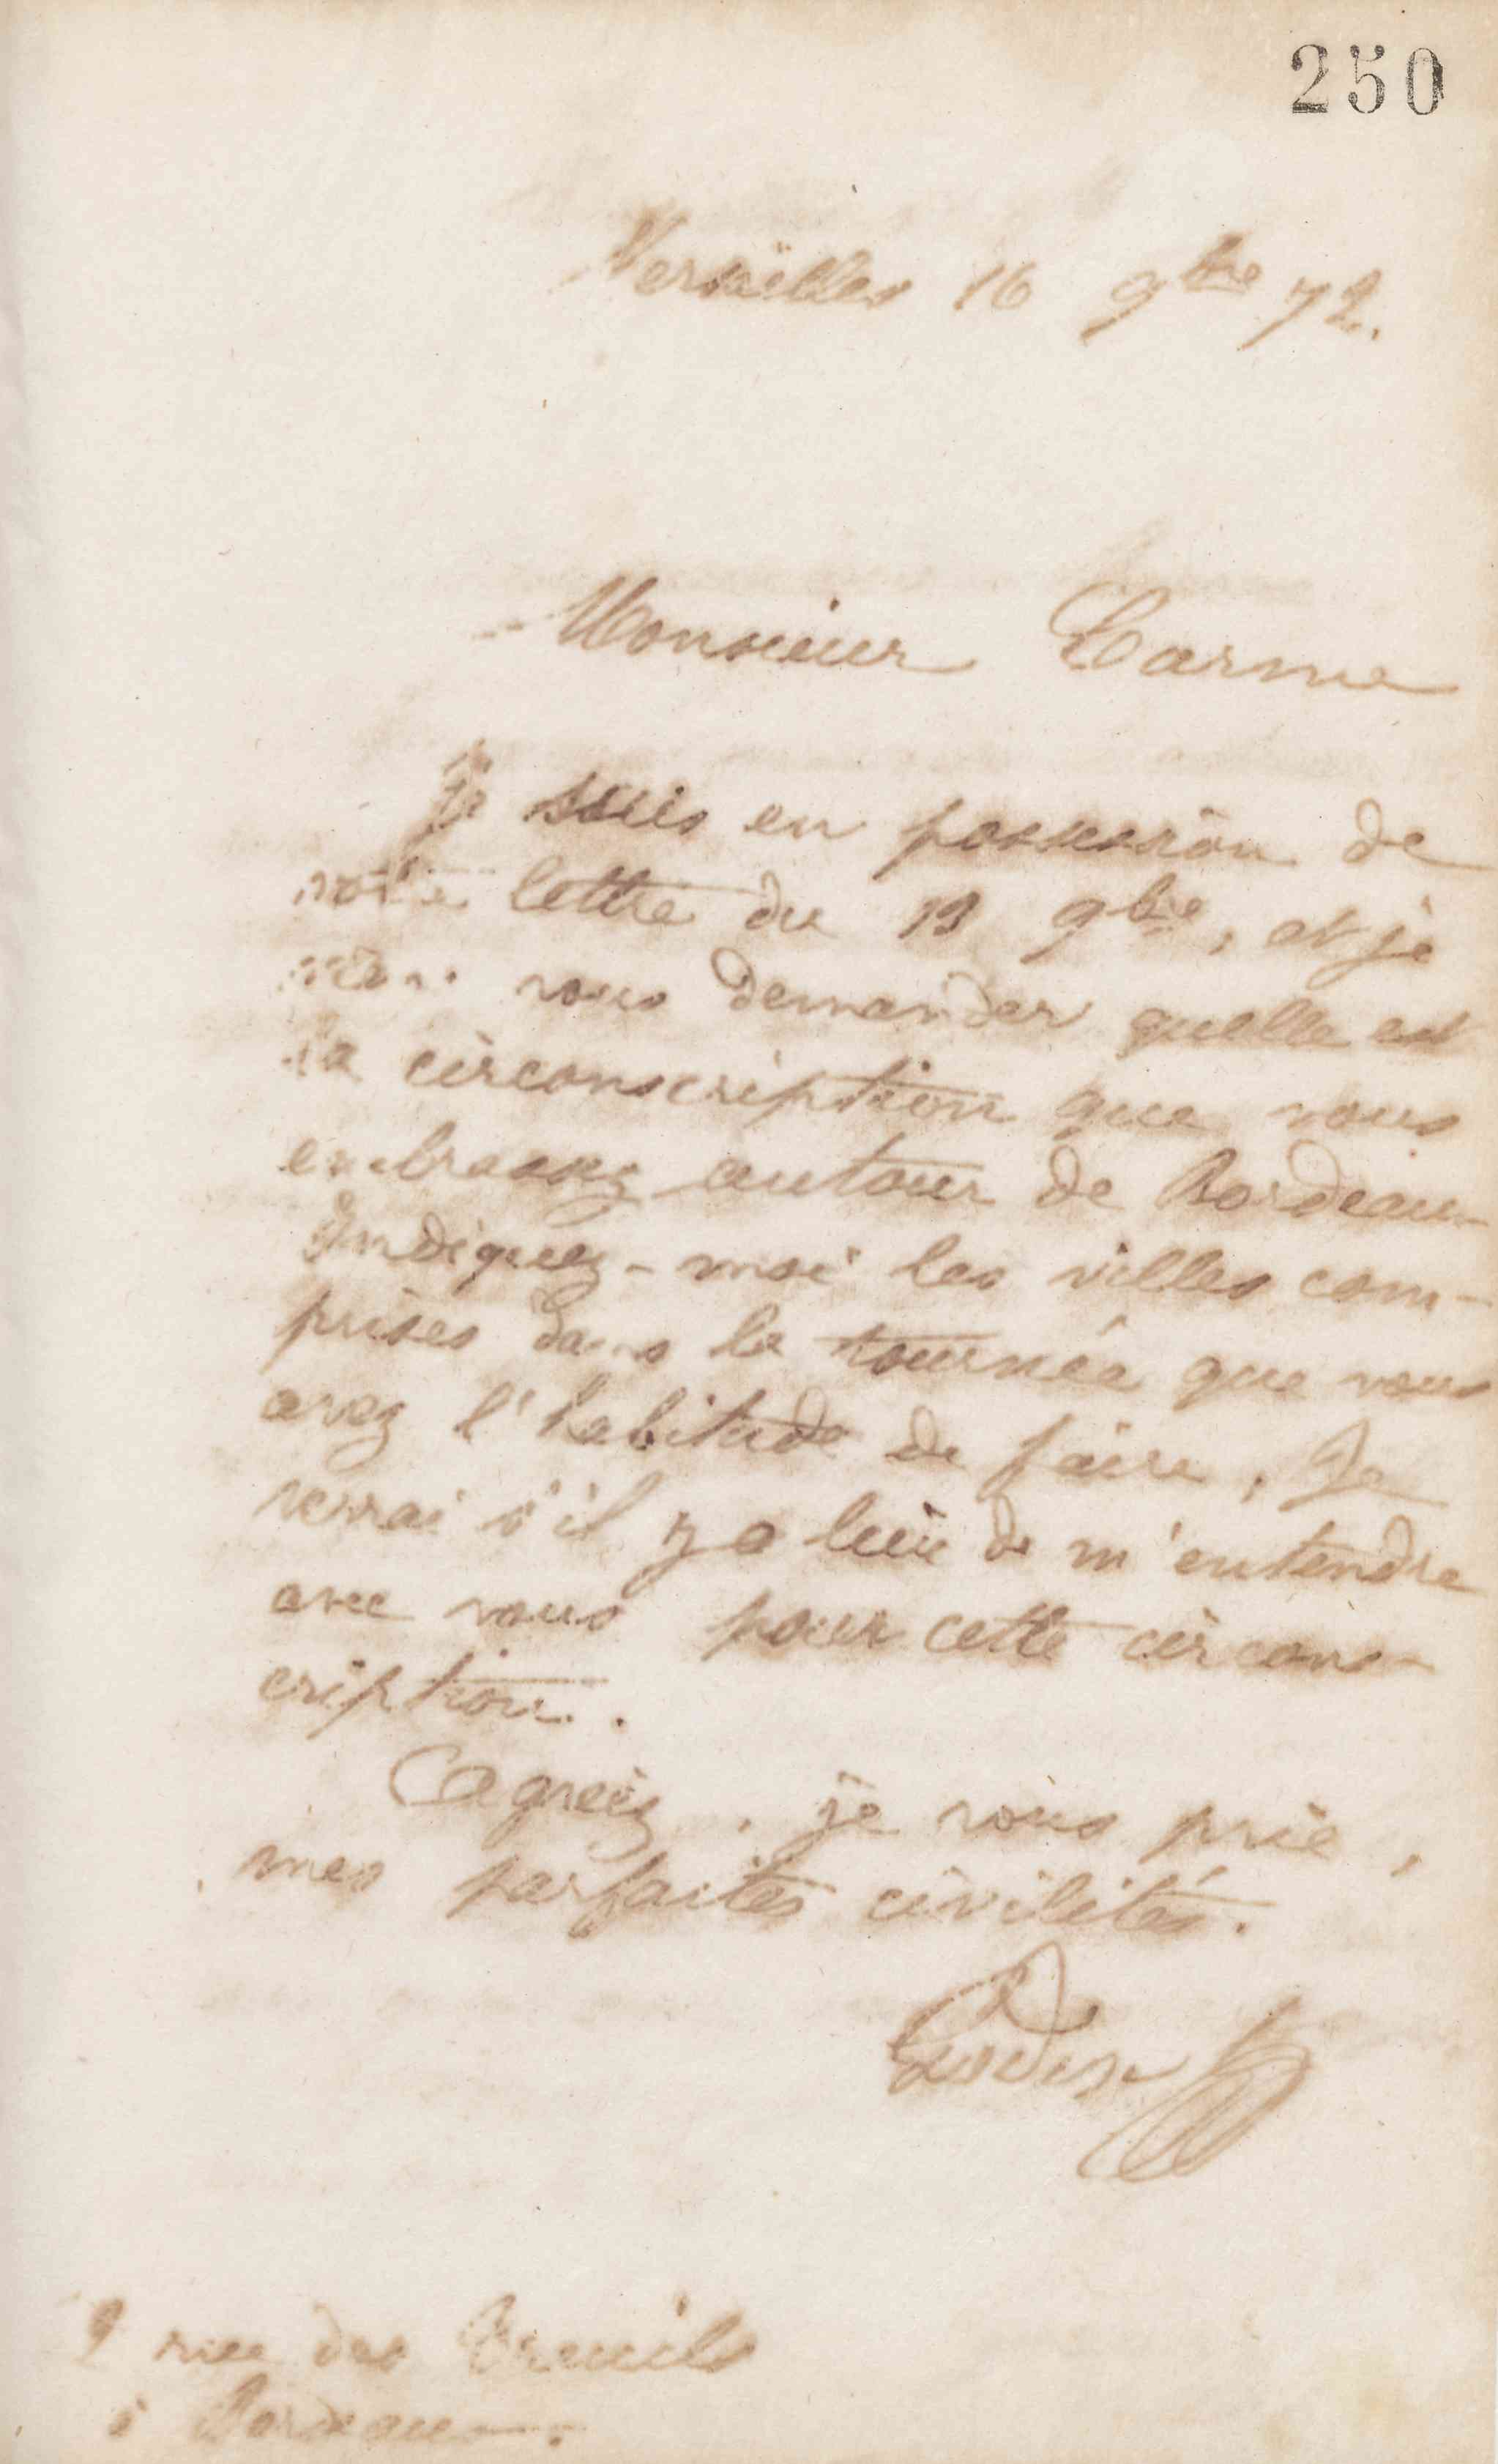 250
Versailles 16 9bre 72.
Monsieur Carme
Je suis en possession de
votre lettre du 13 9bre, et je
viens vous demander quelle est
la circonscription que vous
embrassez autour de Bordeaux
Indiquez-moi les villes com-
prises dans la tournée que vous
avez l'habitude de faire, Je
verrai s'il y a lieu de m'entendre
avec vous pour cette circons-
cription.
Agréez, je vous prie,
mes parfaites civilités.
Godin
9 rue des Treuils
à Bordeaux.